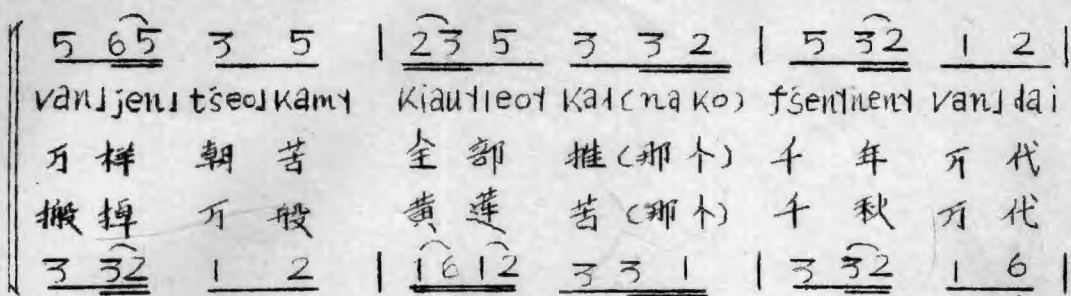 5 65 3 5 | 23 5 3 3 2 | 5 32 1 2 |
van˩jen˩ tśeo˩kam˥ kiau˥leo˥ ka˧(na ko) tśen˥nen˥ van˩dai
万样 朝苦 全部 推(那个) 千年 万代
搬掉 万般 黄莲 苦(那个) 千秋 万代
3 32 1 2 | 16 12 3 3 1 | 3 32 1 6 |